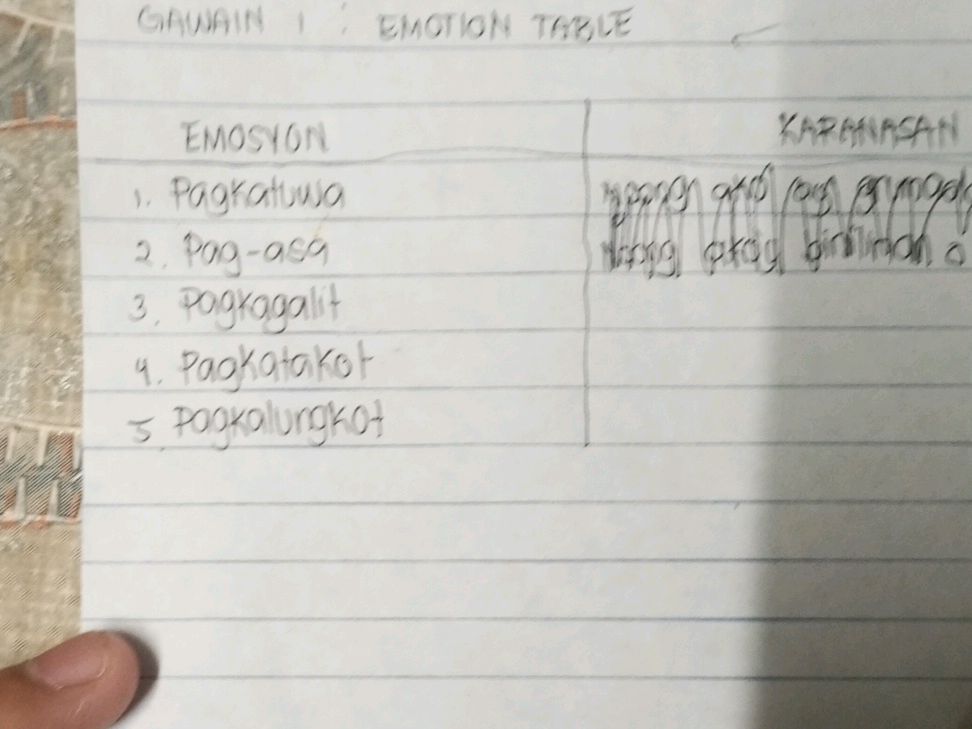 GAWAIN 1 : EMOTION TABLE
EMOSYON KARANASAN
1. Pagkatuwa
2. Pag-asa
3. Pagkagalit
4. Pagkatakot
5. Pagkalungkot